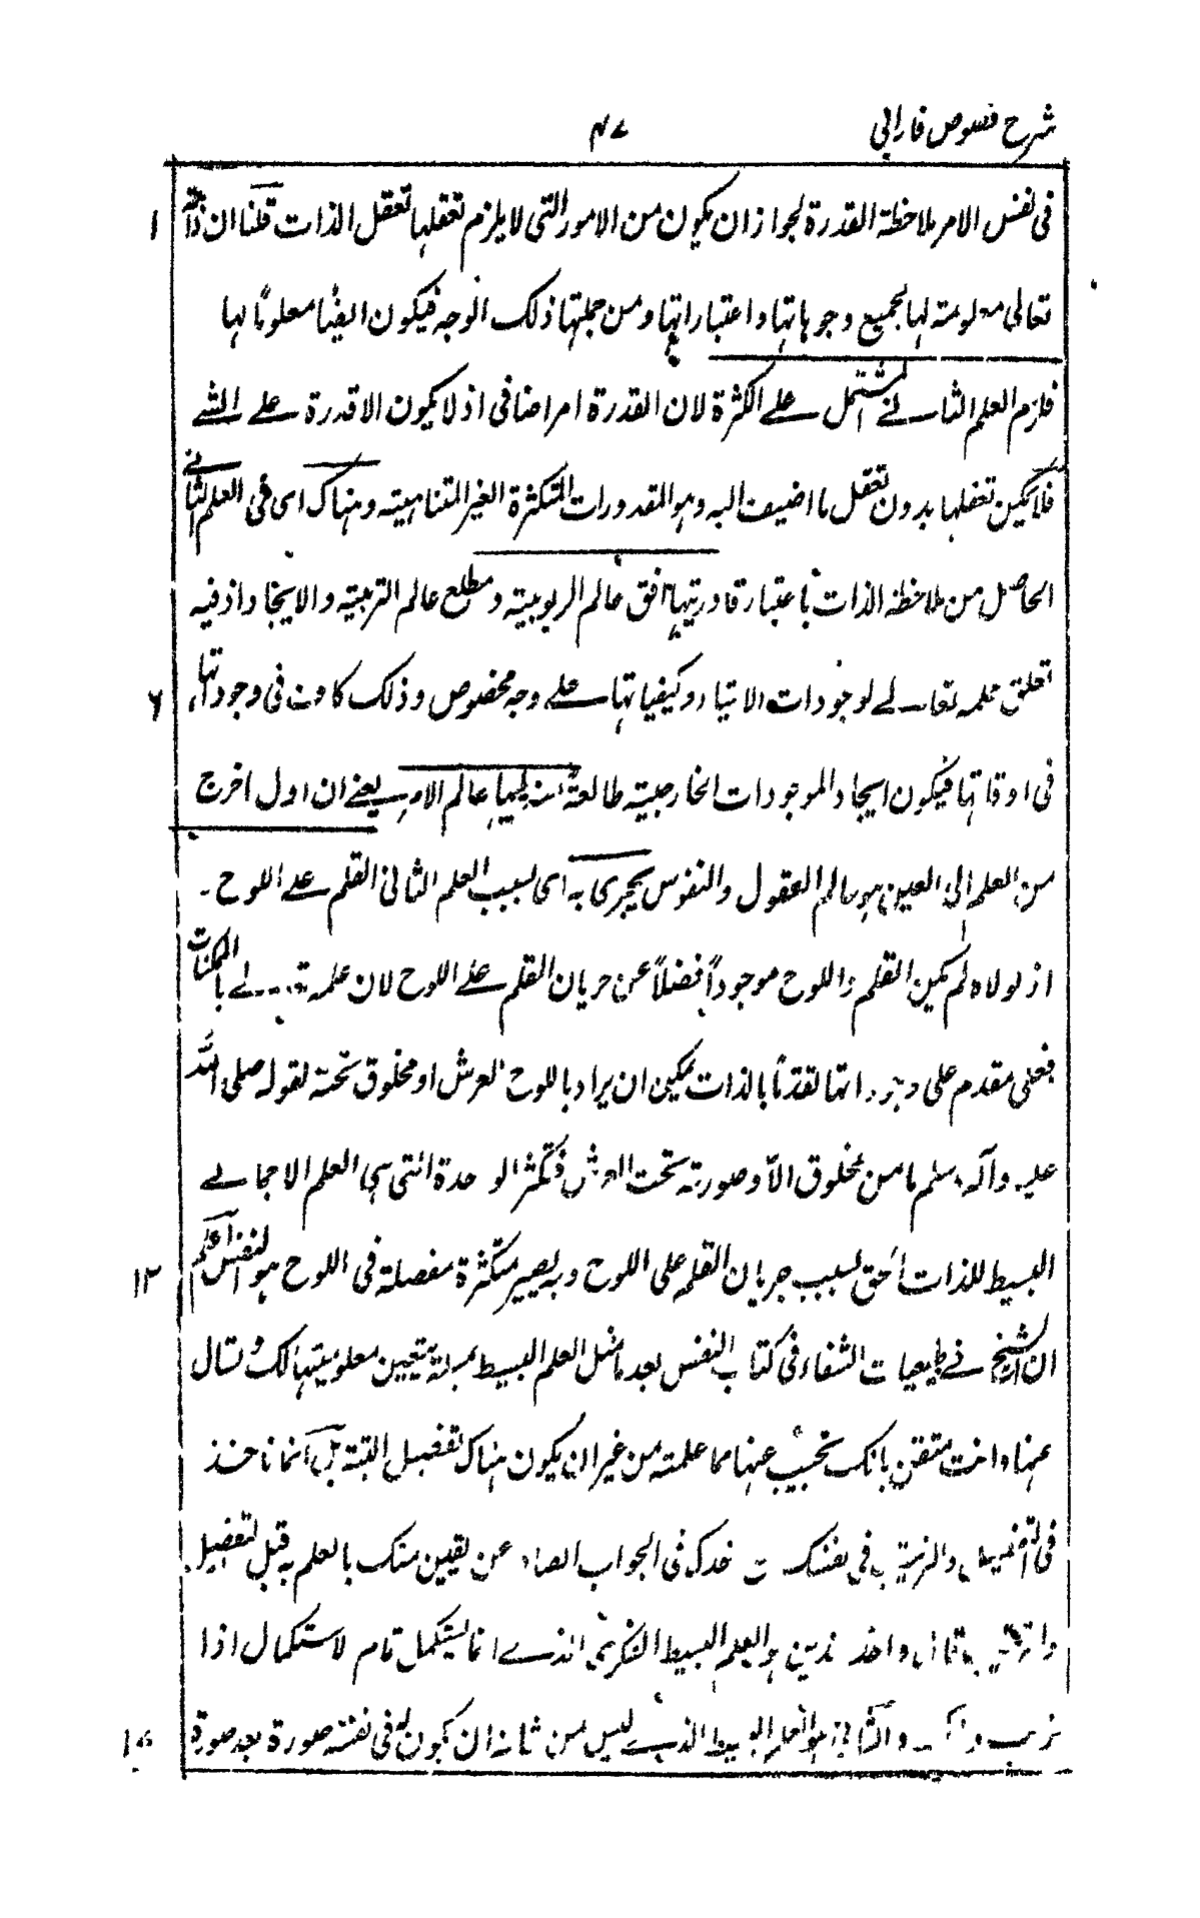 شرح فصوص فارابی
۴۷
فی نفس الامر ملاحظة القدرة لجواز ان یکون من الامور التی لا یلزم تعقلها تعقل الذات قلنا ان ذاته
۱
تعالی معلومته لها لجمیع وجوهاتها و اعتباراتها و من جملتها ذلک الوجه فیکون ایضا معلوما لها
فلزم العلم الثانے المشتمل علے الکثرة لان القدرة امر اضافی اذ لا یکون الا قدرة علے الشے
فلا یمکن تعقلها بدون تعقل ما اضیف الیه و هو المقدورات المتکثرة الغیر المتناهیته و هناک ای فی العلم الثانے
الحاصل من ملاحظة الذات باعتبار قادریتها افق عالم الربوبیته و مطلع عالم التربیته و الایجاد اذ فیه
تعلق علمه تعالے لوجودات الاشیاء و کیفیاتها علے وجه مخصوص و ذلک کاف فی وجوداتها
۶
فی اوقاتها فیکون ایجاد الموجودات الخارجیته طالعة یلیها عالم الامر یعنے ان اول اخرج
من العلم الی العین هو عالم العقول و النفوس یجری به ای بسبب العلم الثانی القلم علے اللوح۔
اذ لولاه لم یکن القلم و اللوح موجوداً فضلاً عن جریان القلم علے اللوح لان علمه تعالے بالممکنات
فعلی مقدم علی وجوداتها تقدما بالذات یمکن ان یراد باللوح العرش او مخلوق تحته لقوله صلی الله
علیه و آله و سلم ما من مخلوق الا و صورته تحت العرش فتکثر الوحدة التی هی العلم الاجمالے
البسیط للذات الحق بسبب جریان القلم علی اللوح و به یصیر متکثرة مفصلة فی اللوح هو النفس اعلم
۱۲
ان الشیخ فے طبیعیات الشفاء فی کتاب النفس بعد ما مثل العلم البسیط بمسئلة یتعین معلومیتها لک تسال
عنها و انت متقن بانک تجیب عنها مما علمته من غیر ان یکون هناک تفصیل البتة بل انما تاخذ
فی التفصیل و الترتیب فی نفسک خذک فی الجواب الصادر عن یقین منک بالعلم به قبل التفصیل
و الترتیب قال و احد هو العلم البسیط الفکری الذے انما یستکمل تمام الاستکمال اذا
ترتب و و الثانی هو العلم البسیط الذے لیس من شانه ان یکون له فی نفسه صورة بعد صورة